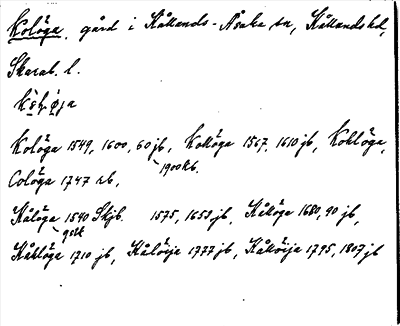 Kolöga, gård i Kållands-Åsaka sn, Kållands hd,
Skarab. l.
Kolöga 1549, 1600, 60 jb, Kollöga 1567, 1610 jb, Kohlöga,
1900 kb.
Colöga 1747 rb,
Kålöga 1540 Skjb. 1575, 1653 jb, Kålöga 1680, 90 jb,
Kåhlöga 1710 jb, Kålöija 1777 jb, Kållöija 1795, 1807 jb